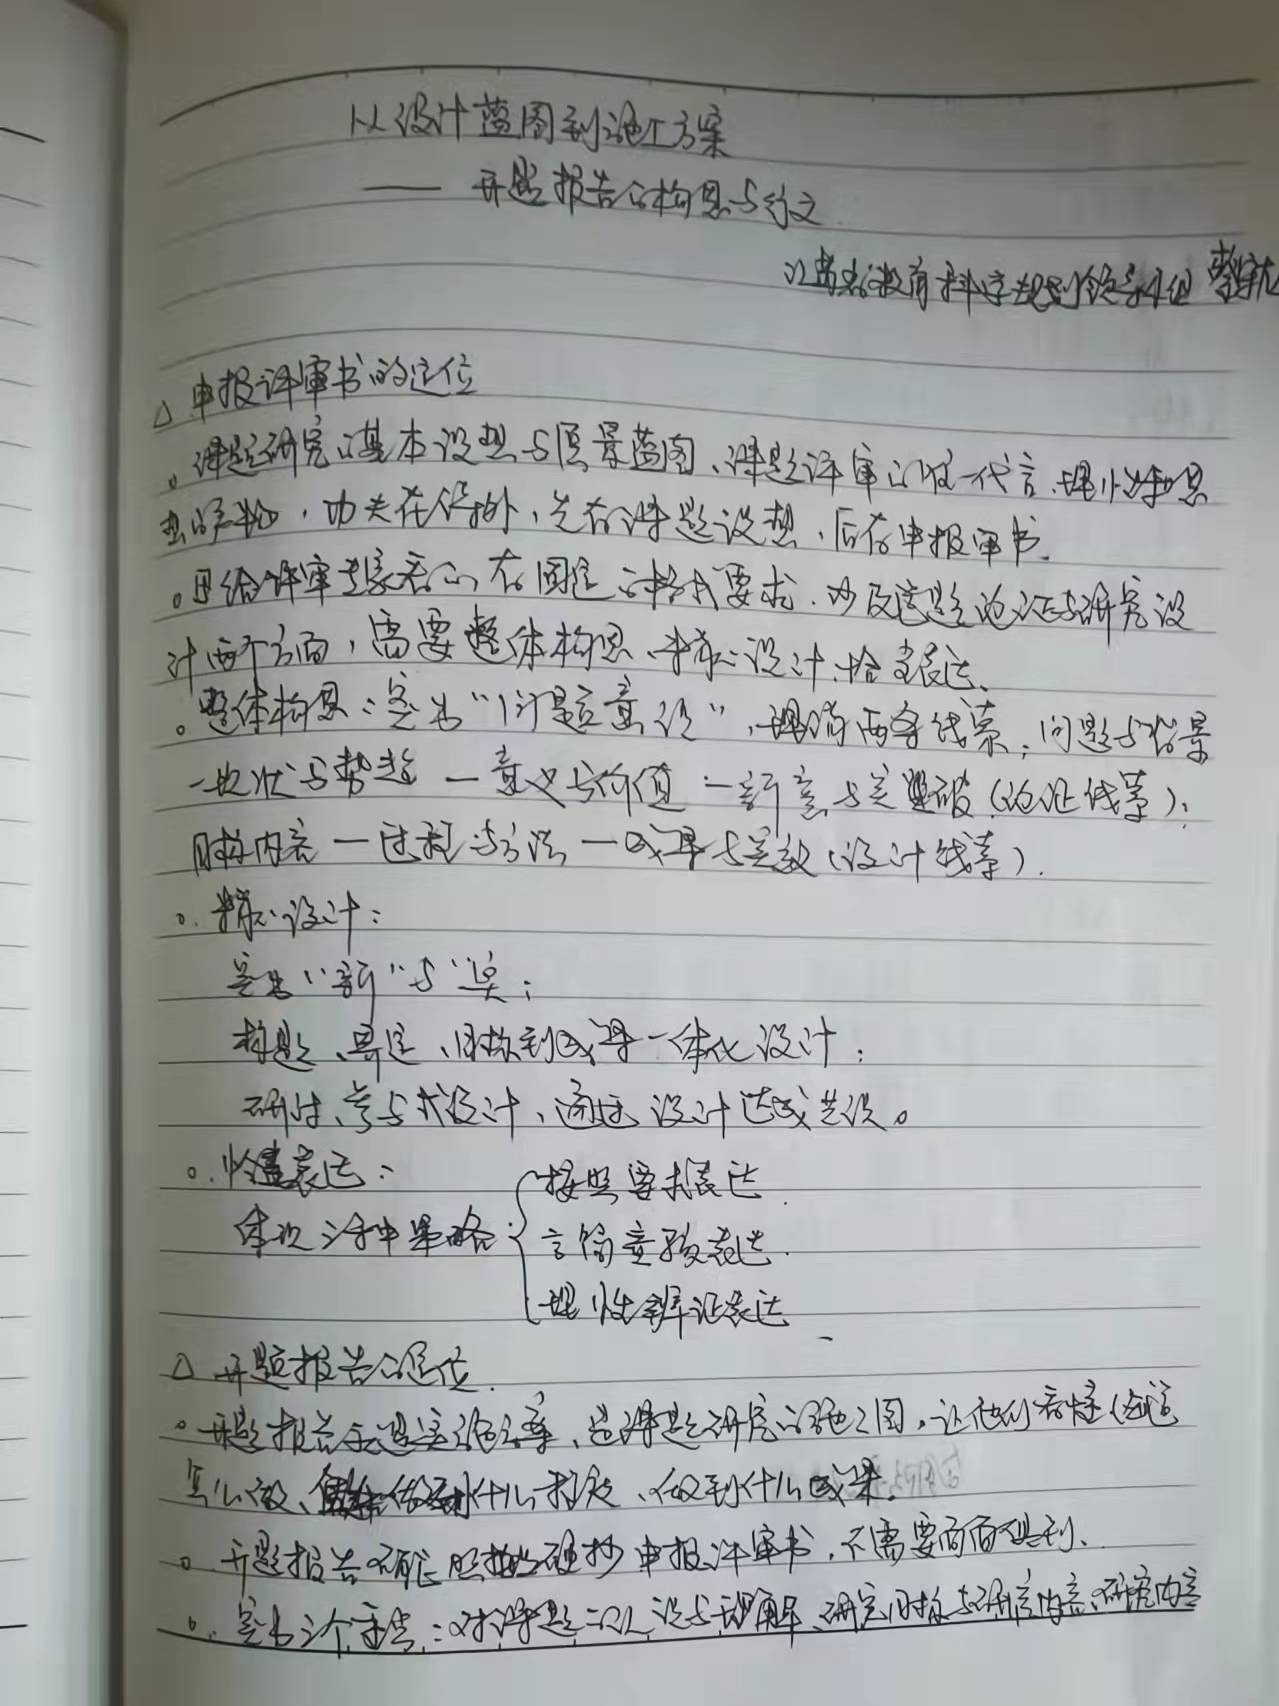 从设计蓝图到施工方案
—— 开题报告的构思与行文
江苏省教育科学规划领导小组
△ 申报评审书的定位
。课题研究的基本设想与愿景蓝图、课题评审的唯一代言、理性构思
的产物，功夫在书外，先有课题设想，后有申报审书.
。是给评审专家看的，有固定的格式要求，涉及选题论证与研究设
计两个方面，需要整体构思、精心设计、恰当表达、
。整体构思：突出“问题意识”，理清两条线索：问题与背景
—现状与趋势—意义与价值—新意与突破（论证线索）；
目标内容—过程与方法—成果与实效（设计线索）.
。精心设计：
突出“新”与“实”；
标题、界定、目标到成果一体化设计；
研讨、参与式设计、通过设计达成共识。
。恰当表达：
体现 集中策略：
按照要求表达.
言简意赅表达.
理性辩证表达
△ 开题报告的定位.
。开题报告 施工方案、是课题研究的施工图，让他们看懂
怎么做、做到什么程度、做到什么成果.
。开题报告不能照抄 申报评审书，不需要面面俱到、
。突出三个重点：对课题的认识与理解、研究目标与研究内容、研究内容